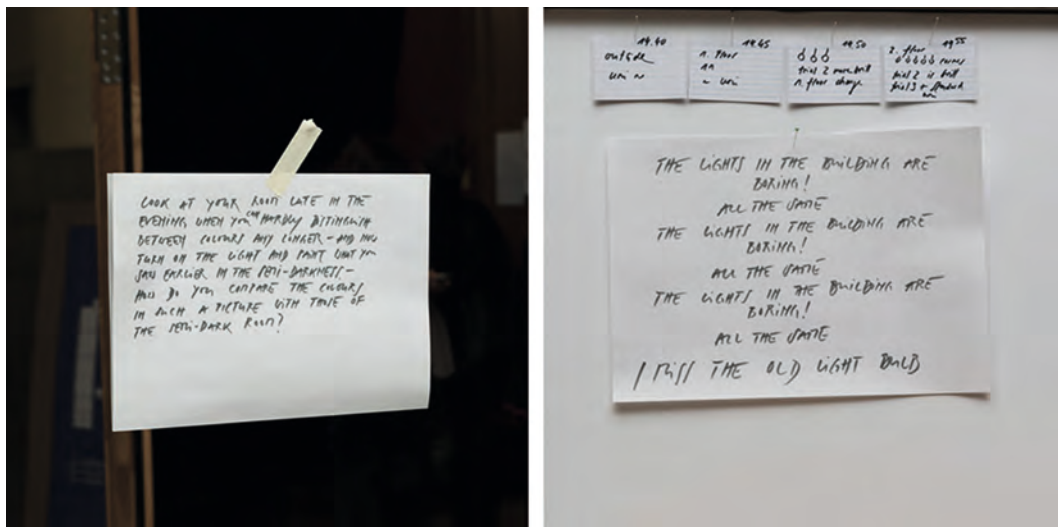 LOOK AT YOUR ROOM LATE IN THE
EVENING WHEN YOU CAN HARDLY DISTINGUISH
BETWEEN COLOURS ANY LONGER – AND NOW
TURN ON THE LIGHT AND PAINT WHAT YOU
SAW EARLIER IN THE SEMI-DARKNESS. –
HOW DO YOU COMPARE THE COLOURS
IN SUCH A PICTURE WITH THOSE OF
THE SEMI-DARK ROOM?
19.40
outside
uni ~
19.45
1. floor
~ uni
19.50
trial 2
1. floor change
19.55
2. floor
trial 2 is best
trial 3
THE LIGHTS IN THE BUILDING ARE
BORING!
ALL THE SAME
THE LIGHTS IN THE BUILDING ARE
BORING!
ALL THE SAME
THE LIGHTS IN THE BUILDING ARE
BORING!
ALL THE SAME
I MISS THE OLD LIGHT BULB